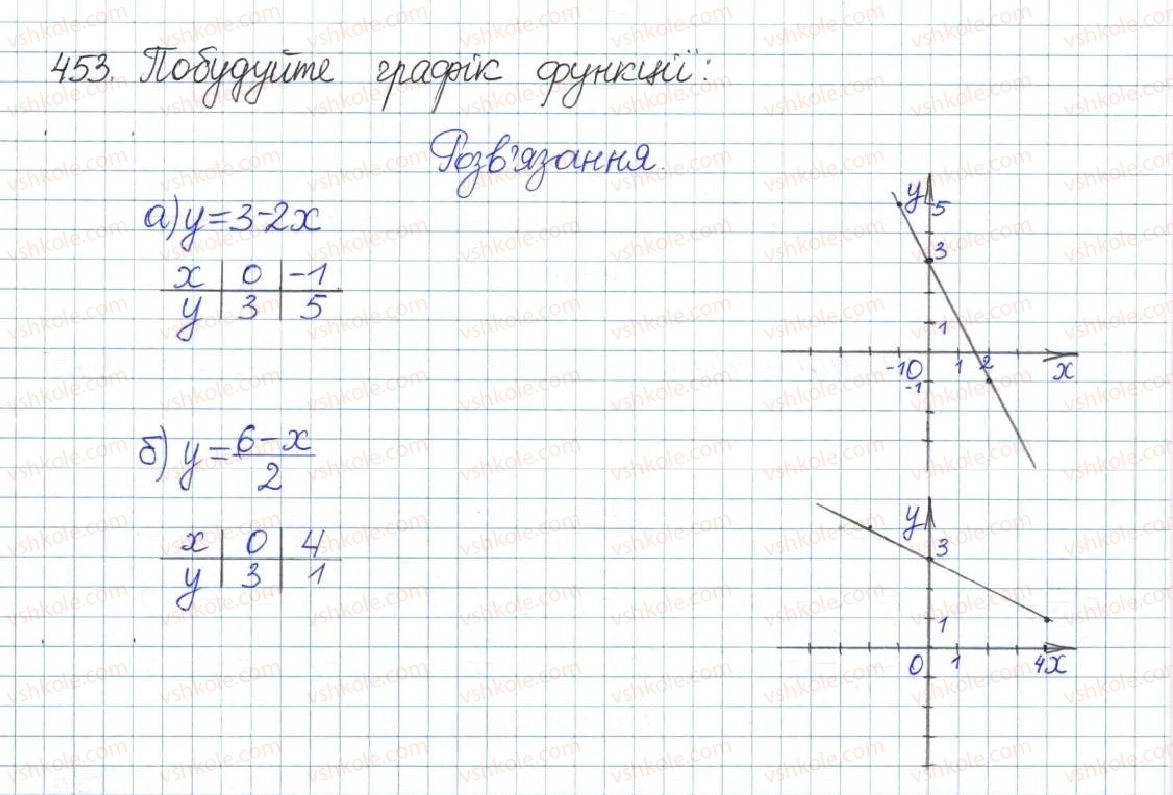 453. Побудуйте графік функції:
Розв'язання.
а) y = 3-2x
x | 0 | -1
y | 3 | 5
y
5
3
1
-1 0 1 2 x
-1
б) y = 6-x / 2
x | 0 | 4
y | 3 | 1
y
3
1
0 1 4 x
vshkole.com